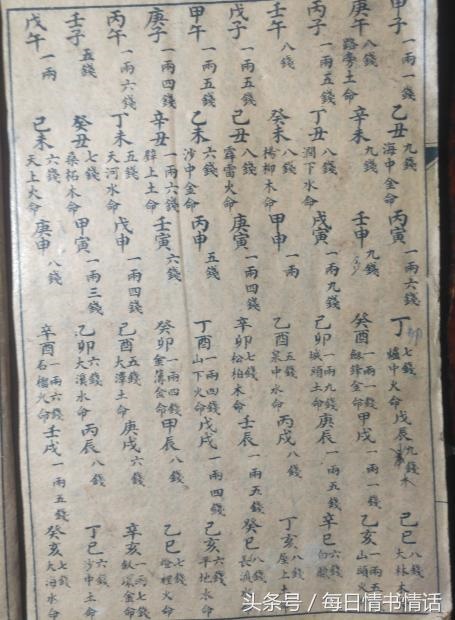 甲子 一兩一錢 乙丑 九錢 海中金命 丙寅 一兩六錢 丁卯 七錢 爐中火命 戊辰 九錢 木 己巳 八錢 大林木
庚午 八錢 路旁土命 辛未 九錢 壬申 九錢 癸酉 一兩一錢 釼鋒金命 甲戌 一兩一錢 乙亥 一兩五 山頭火
丙子 一兩五錢 丁丑 八錢 澗下水命 戊寅 一兩九錢 己卯 一兩九錢 城頭土命 庚辰 一兩五錢 辛巳 六錢 白
壬午 八錢 癸未 八錢 楊柳木命 甲申 一兩 乙酉 五錢 泉中水命 丙戌 八錢 丁亥 八錢 屋上
戊子 一兩五錢 己丑 八錢 霹雷火命 庚寅 一兩四錢 辛卯 七錢 松柏木命 壬辰 一兩五錢 癸巳 八錢 長流
甲午 一兩五錢 乙未 六錢 沙中金命 丙申 五錢 丁酉 一兩四錢 山下火命 戊戌 一兩四錢 己亥 六錢 平地水命
庚子 一兩四錢 辛丑 一兩六錢 壁上土命 壬寅 六錢 癸卯 一兩四錢 金簿金命 甲辰 八錢 乙巳 七錢 燈裡火命
丙午 一兩六錢 丁未 五錢 天河水命 戊申 一兩四錢 己酉 五錢 大澤土命 庚戌 六錢 辛亥 一兩七錢 釵環金命
壬子 五錢 癸丑 七錢 桑柘木命 甲寅 一兩三錢 乙卯 六錢 大溪水命 丙辰 八錢 丁巳 六錢 沙中土命
戊午 一兩 己未 六錢 天上火命 庚申 八錢 辛酉 一兩六錢 石榴火命 壬戌 一兩五錢 癸亥 七錢 大海水命
头条号 / 每日情书情话